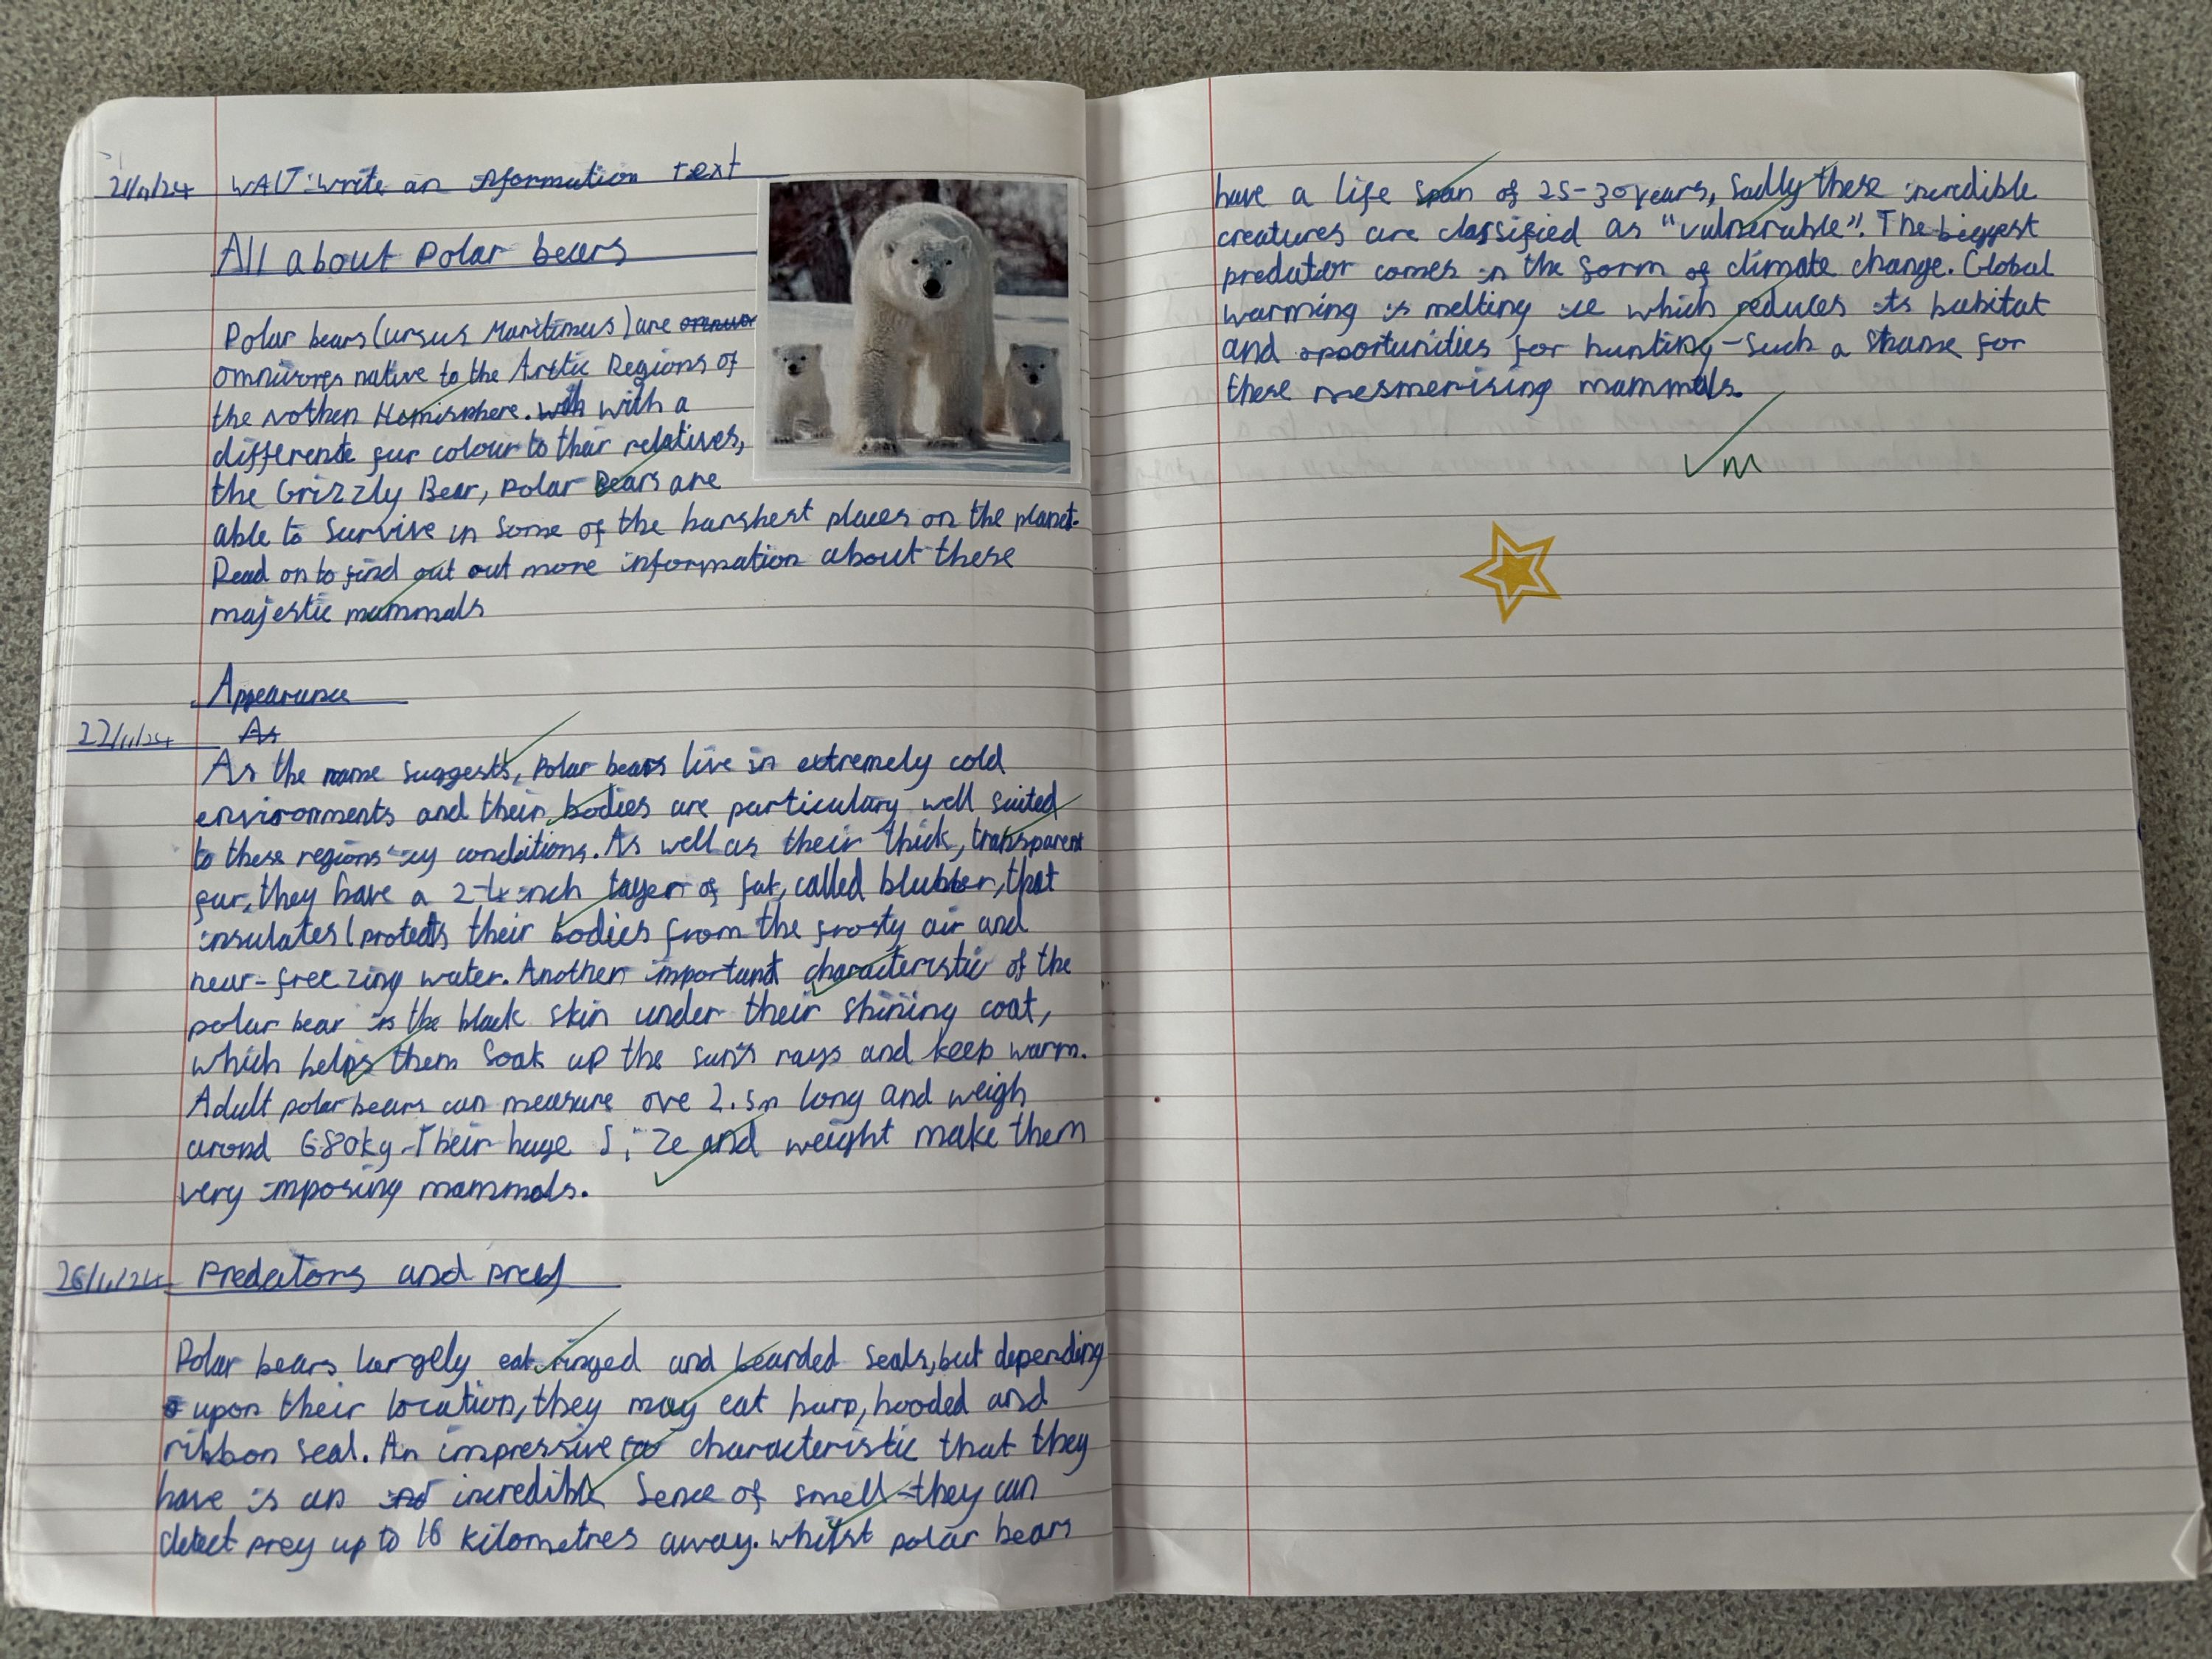 21/11/24 WALT: write an information text
All about Polar bears
Polar bears (ursus Maritimus) are
omnivores native to the Arctic Regions of
the Nothen Hemisphere. with with a
differente fur colour to their relatives,
the Grizzly Bear, Polar Bears are
able to survive in some of the harshest places on the planet.
Read on to find out out more information about these
majestic mammals
Appearance
22/11/24 As
As the name suggests, Polar bears live in extremely cold
environments and their bodies are particulary well suited
to these regions icy conditions. As well as their thick, transparent
fur, they have a 2-4 inch layer of fat, called blubber, that
insulates (protects their bodies from the frosty air and
near-freezing water. Another important characteristic of the
polar bear is the black skin under their shining coat,
which helps them soak up the sun's rays and keep warm.
Adult polar bears can measure ove 2.5m long and weigh
arond 680kg. Their huge size and weight make them
very imposing mammals.
26/11/24 Predators and prey
Polar bears largely eat ringed and bearded seals, but depending
upon their location, they may eat harp, hooded and
ribbon seal. An impressive characteristic that they
have is an incredible sence of smell - they can
detect prey up to 16 kilometres away. whilst polar bears
have a life span of 25-30 years, sadly these incredible
creatures are classified as "vulnerable". The biggest
predator comes in the form of climate change. Global
warming is melting ice which reduces its habitat
and opportunities for hunting - such a shame for
these mesmerising mammals.